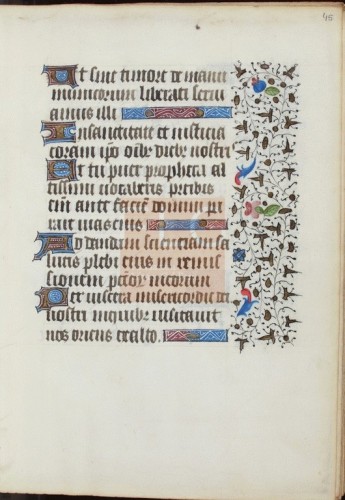 45
Ut sine timore de manu
inimicorum liberati serui
amus illi
In sanctitate et iusticia
coram ipo oibz diebz nostris
Et tu puer propheta al
tissimi uocaberis preibis
eim ante faciem domini pa
rare uias eius
Ad dandam scienciam sa
lutis plebi eius in remis
sionem pctor meorum
Per uiscera misericordie dei
nostri in quibz uisitauit
nos oriens ex alto.